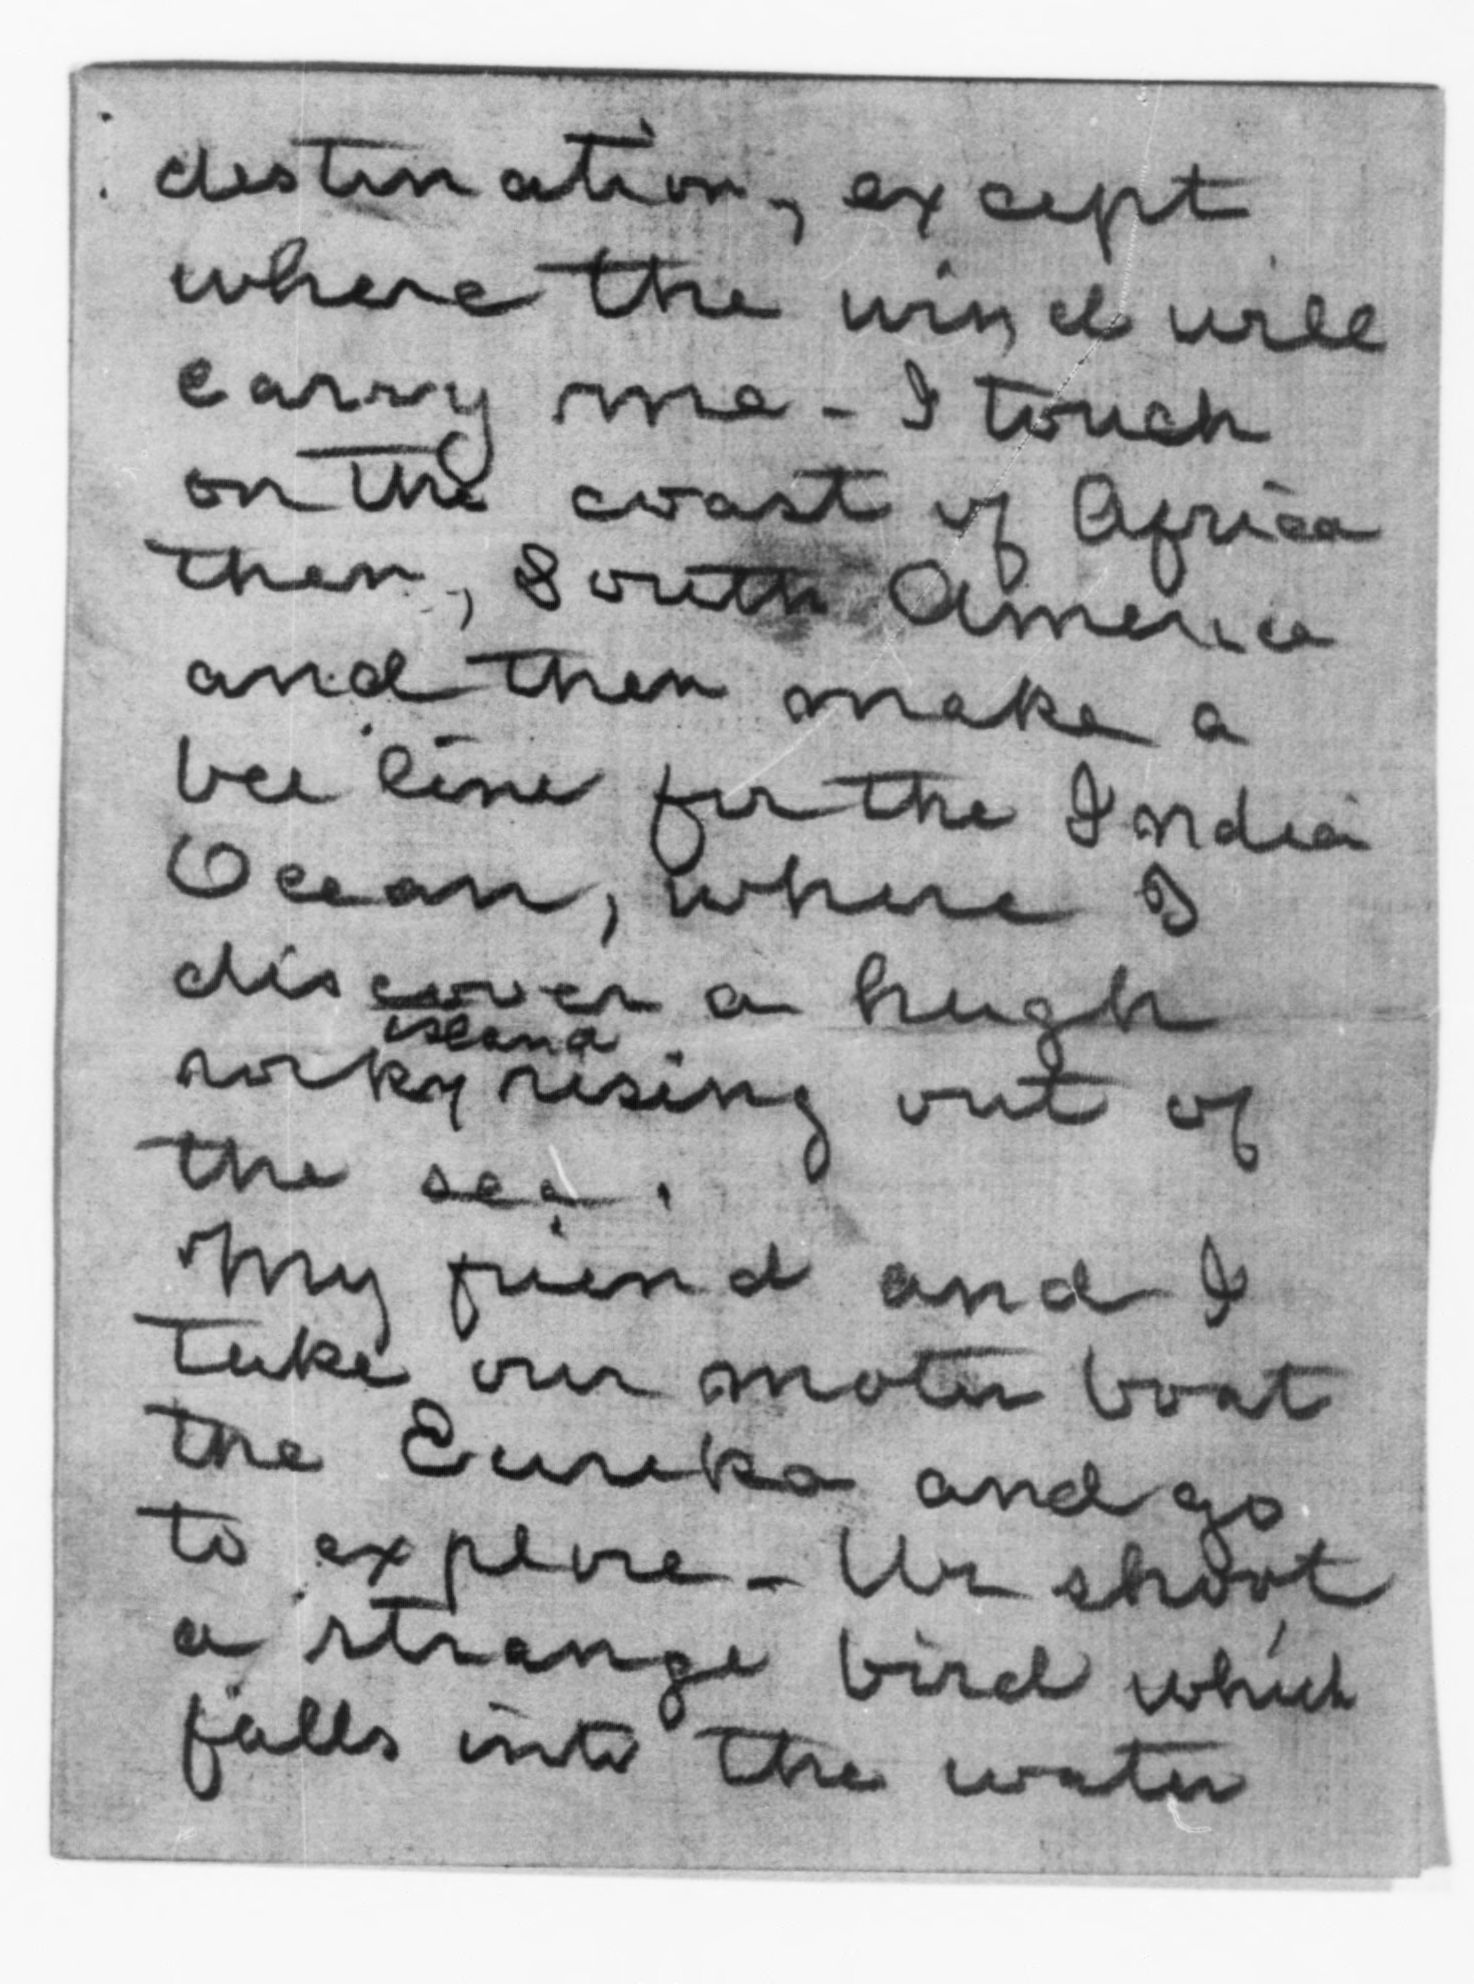 destination, except
where the wind will
carry me - I touch
on the coast of Africa
then, South America
and then make a
bee line for the India
Ocean, where I
discover a hugh
island
rocky rising out of
the sea.
My friend and I
take our motor boat
the Eureka and go
to explore - We shoot
a strange bird which
falls into the water